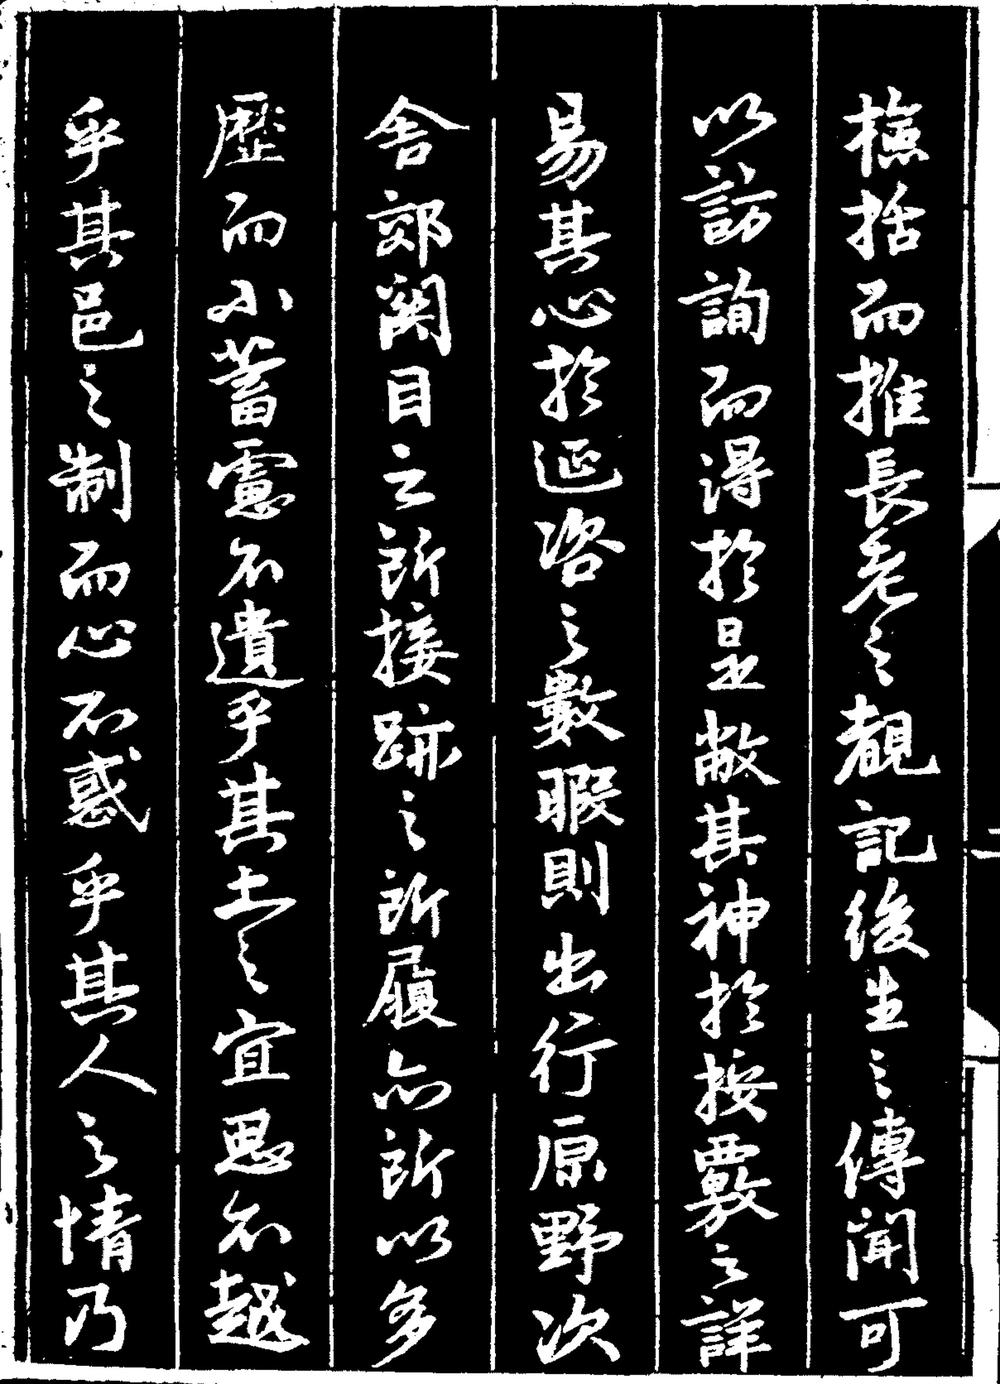 檃括而推長老之覩記後生之傳聞可
以訪詢而得於是敝其神於按覈之詳
易其心於延咨之數暇則出行原野次
舍郊関目之所接跡之所履亦所以多
歷而小蓄慮不遺乎其土之宜思不越
乎其邑之制而心不惑乎其人之情乃